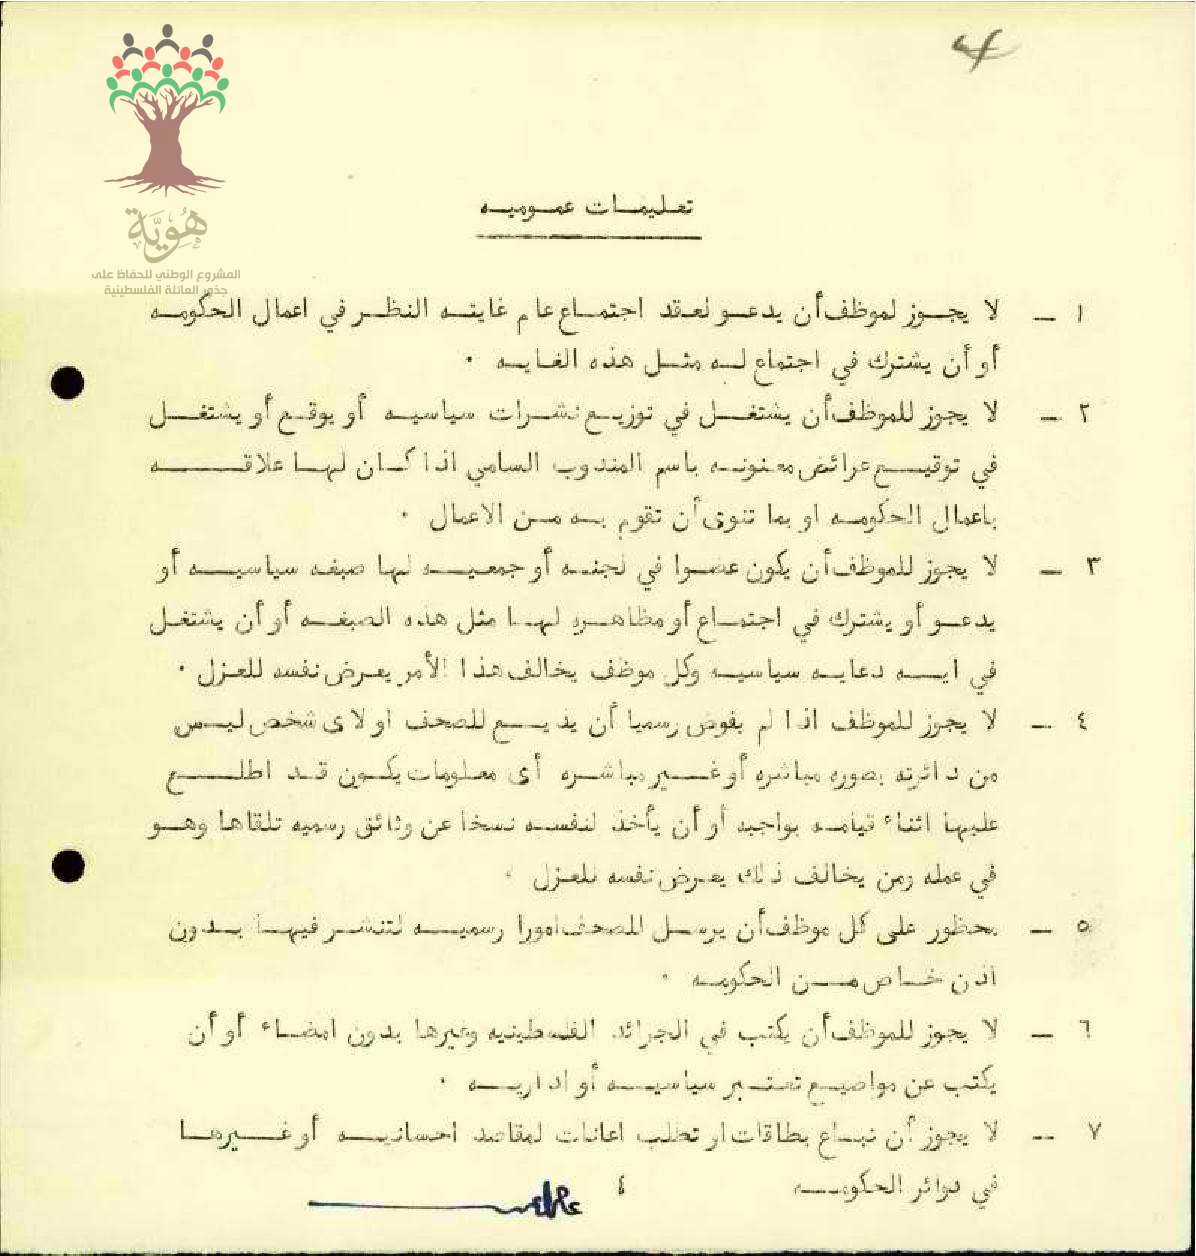 4
هُوِيَّة
المشروع الوطني للحفاظ على
جذور العائلة الفلسطينية
تعليمات عموميه
١ – لا يجوز لموظف أن يدعو لعقد اجتماع عام غايته النظر في اعمال الحكومه
أو أن يشترك في اجتماع له مثل هذه الغايه .
٢ – لا يجوز للموظف أن يشتغل في توزيع نشرات سياسيه أو يوقع أو يشتغل
في توقيع عرائض معنونه باسم المندوب السامي اذا كان لها علاقه
باعمال الحكومه او بما تنوى أن تقوم به من الاعمال .
٣ – لا يجوز للموظف أن يكون عضوا في لجنه أو جمعيه لها صبغه سياسيه أو
يدعو أو يشترك في اجتماع أو مظاهره لها مثل هذه الصبغه أو أن يشتغل
في ايه دعايه سياسيه وكل موظف يخالف هذا الأمر يعرض نفسه للعزل .
٤ – لا يجوز للموظف اذا لم يفوض رسميا أن يذيع للصحف او لاى شخص ليس
من دائرته بصوره مباشره أو غير مباشره أى معلومات يكون قد اطلع
عليها اثناء قيامه بواجبه أو أن يأخذ لنفسه نسخا عن وثائق رسميه تلقاها وهو
في عمله ومن يخالف ذلك يعرض نفسه للعزل .
٥ – محظور على كل موظف أن يرسل للصحف امورا رسميه لتنشر فيها بدون
اذن خاص من الحكومه .
٦ – لا يجوز للموظف أن يكتب في الجرائد الفلسطينيه وغيرها بدون امضاء أو أن
يكتب عن مواضيع تعتبر سياسيه أو اداريه .
٧ – لا يجوز أن تباع بطاقات او تطلب اعانات لمقاصد احسانيه أو غيرها
في دوائر الحكومه
٤